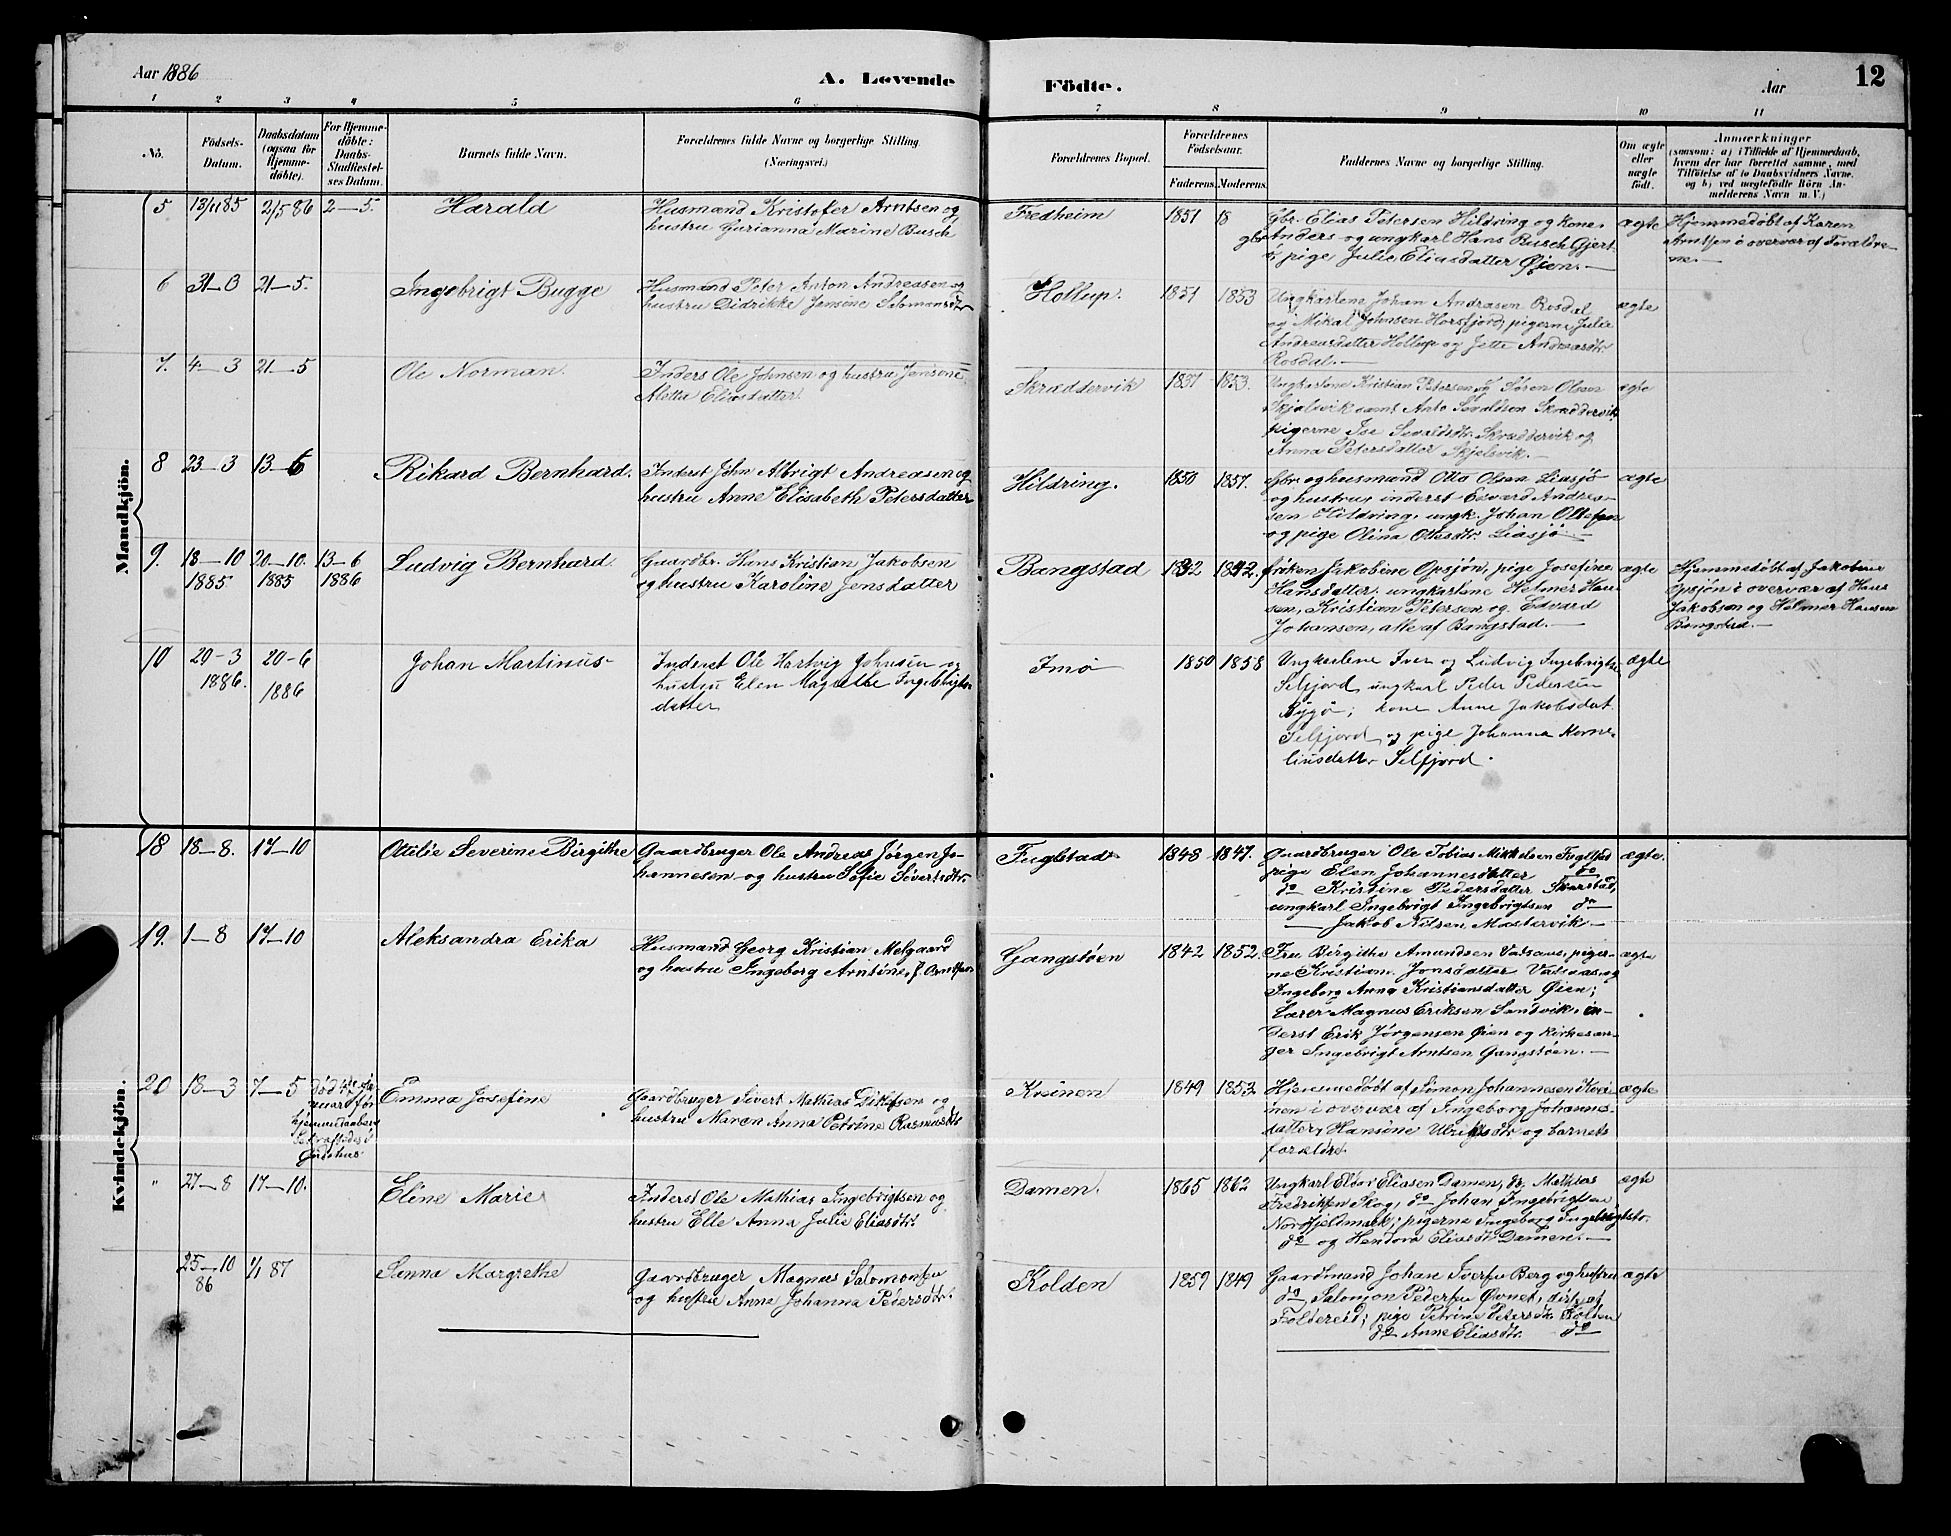 Aar 1886
A. Levende
Födte.
Aar
12
1 2 3 4 5 6 7 8 9 10 11
No.
Födsels-Datum.
Daabsdatum (ogsaa for Hjemme-döbte).
For Hjemme-döbte: Daabs-Stadfæstel-ses Datum.
Barnets fulde Navn.
Forældrenes fulde Navne og borgerlige Stilling. (Næringsvei.)
Forældrenes Bopæl.
Forældrenes Födselsaar.
Faderens. Moderens.
Faddernes Navne og borgerlige Stilling.
Om ægte eller uægte födt.
Anmærkninger
(saasom: a) i Tilfælde af Hjemmedaab, hvem der har forrettet samme, med Tilföielse af to Daabsvidners Navne, og b) ved uægtefödte Börn Anmelderens Navn m. V.)
Mandkjön.
5 13/11 85 2/5 86 2–5. Harald
Husmand Kristofer Arntsen og
hustru Gurianna Marine Busch
Fredheim 1851 18
Gbr. Elias Petersen Hildring og kone
Anders og ungkarl Hans Busch Gjert
pige Julie Eliasdatter Øien.
ægte
Hjemmedøbt af Karen
Arntsen i overvær af Forældre-
ne.
6 31–3 21–5. Ingebrigt Bugge
Husmand Peter Anton Andreasen og
hustru Didrikke Jensine Salomonsdtr
Hollup. 1851 1853
Ungkarlene Johan Andrasen Rosdal
og Mikal Johnsen Horsfjord, pigerne Julie
Andreasdatter Hollup og Jette Andreasdtr.
Rosdal.
ægte
7. 4–3 21–5 Ole Norman.
Inders Ole Johnsen og hustru Jensine
Aletta Eliasdatter.
Skræddervik 1851 1853.
Ungkarlene Kristian Petersen og Søren Olsen
Skjelsvik samt Anto Sevaldsen Skræddervik
pigerne Ise Sevaldsdtr. Skræddervik og
Anna Petersdatter Skjelsvik.
ægte
8 23–3 13–6 Rikard Bernhard.
Inderst John Albrigt Andreasen og
hustru Anne Elisabeth Petersdatter
Hildring. 1850 1857.
Gbr. og husmand Otto Olsen Liasjø
og hustru, inderst Edvard Andrea-
sen Hildring, ungk. Johan Ottesen
og pige Olina Ottesdtr. Liasjø
ægte
9. 18–10 1885 20–10. 1885 13–6 1886 Ludvig Bernhard.
Gaardbr. Hans Kristian Jakobsen
og hustru Karoline Jensdatter
Bangstad 1832 1842.
frøken Jakobine Opsjøn, pige Josefine
Hansdatter, ungkarlene Helmer Han
sen, Kristian Petersen og Edvard
Johansen, alle af Bangstad.
ægte
Hjemmedøbt af Jakobine
Opsjøn i overvær af Hans
Jakobsen og Helmer Hansen
Bangstad.
10 29–3 1886. 20–6 1886 Johan Martinus
Inderst Ole Hartvig Johnsen og
hustru Elen Magrethe Ingebrigts-
datter
Imø 1850 1858
Ungkarlene Iver og Ludvig Ingebrigtsen
Selfjord, ungkarl Peder Pedersen
Bygø; kone Anne Jakobsdat.
Selfjord, og pige Johanna Korne-
liusdatter Selfjord.
ægte
Kvindekjön.
18 18–8. 17–10 Ottilie Severine Birgithe
Gaardbruger Ole Andreas Jørgen Jo-
hannesen og hustru Sofie Sivertsdtr.
Fuglstad 1848 1847.
Gaardbruger Ole Tobias Mikkelsen Fuglstad
pige Elen Johannesdatter do
do Kristine Pedersdatter Skarstad,
ungkarl Ingebrigt Ingebrigtsen do
Jakob Nilsen Mastervik.
ægte.
19. 1–8 17–10 Aleksandra Erika
Husmand Georg Kristian Melgaard
og hustru Ingeborg Arntine, f. Arntsen
Gangstøen 1842 1852.
Fru Birgithe Amundsen Vadsaas, piger-
ne Kristiane Jonsdatter Vadsaas og
Ingeborg Anna Kristiansdatter Øien;
Lærer Magnus Eriksen Sandvik, in-
derst Erik Jørgensen Øien og kirkesan-
ger Ingebrigt Arntsen Gangstøen.
ægte
20 18–3 7–5 Emma Josefine
Gaardbruger Sivert Mathias Ditlefsen og
hustru Maren Anna Petrine Rasmusdtr
Kveinen 1849 1853
Hjemmedøbt af Simon Johannesen Kvei-
nen i overvær af Ingeborg Johannes-
datter, Hansine Ulriksdtr og barnets
forældre.
ægte
" 27–8 17–10. Eline Marie
Inderst Ole Mathias Ingebrigtsen og
hustru Elle Anna Julie Eliasdtr.
Damen. 1865 1862
Ungkarl Eldar Eliasen Damen, do Mathias
Fredriksen Skog, do Johan Ingebrigtsen
Nordfjeldmark; pigerne Ingeborg Ingebrigtsdtr.
do og Hendora Eliasdtr Damen.
ægte
25–10 86 1/1 87 Sanna Margrethe
Gaardbruger Magnus Salomonsen
og hustru Anne Johanna Pedersdtr.
Kolden 1859 1849
Gaardmand Johan Iversen Berg og hustru
do Salomon Pedersen Øvnet, dist. af
Foldereid; pige Petrine Petersdtr Kolden
do Anne Eliasdtr. do
ægte